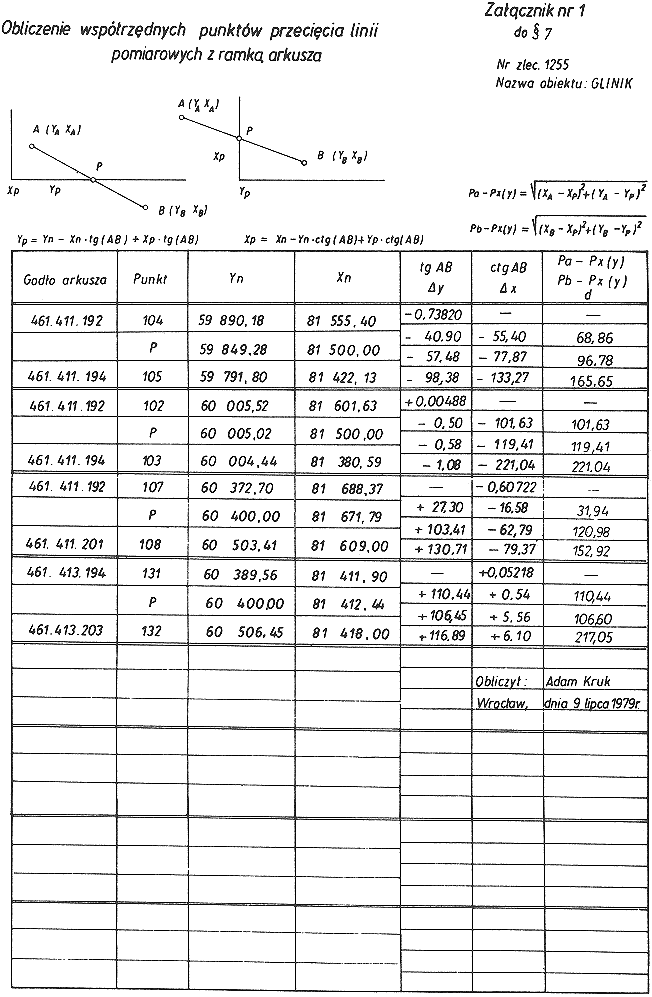 Załącznik nr 1
do § 7
Obliczenie współrzędnych punktów przecięcia linii
pomiarowych z ramką arkusza
Nr zlec. 1255
Nazwa obiektu: GLINIK
A (YA XA)
P
Xp Yp
B (YB XB)
A (YA XA)
P
Xp
B (YB XB)
Yp
Pa – Px(y) = √(XA – Xp)²+(YA – Yp)²
Pb – Px(y) = √(XB – Xp)²+(YB – Yp)²
Yp = Yn – Xn·tg(AB) + Xp·tg(AB)
Xp = Xn – Yn·ctg(AB)+Yp·ctg(AB)
Godło arkusza Punkt Yn Xn tg AB Δy ctg AB Δx Pa – Px(y) Pb – Px(y) d
– 0,73820 — —
461.411.192 104 59 890,18 81 555,40
– 40,90 – 55,40 68,86
P 59 849,28 81 500,00
– 57,48 – 77,87 96,78
461.411.194 105 59 791,80 81 422,13 – 98,38 – 133,27 165,65
461.411.192 102 60 005,52 81 601,63 +0,00488 — —
– 0,50 – 101,63 101,63
P 60 005,02 81 500,00
– 0,58 – 119,41 119,41
461.411.194 103 60 004,44 81 380,59 – 1,08 – 221,04 221.04
461.411.192 107 60 372,70 81 688,37 — – 0,60722 —
+ 27,30 – 16,58 31,94
P 60 400,00 81 671,79
+ 103,41 – 62,79 120,98
461.411.201 108 60 503,41 81 609,00 + 130,71 – 79,37 152,92
461.413.194 131 60 389,56 81 411,90 — +0,05218 —
+ 110,44 + 0.54 110,44
P 60 400,00 81 412,44
+ 106,45 + 5,56 106,60
461.413.203 132 60 506,45 81 418,00 + 116,89 + 6.10 217,05
Obliczył: Adam Kruk
Wrocław, dnia 9 lipca 1979r.